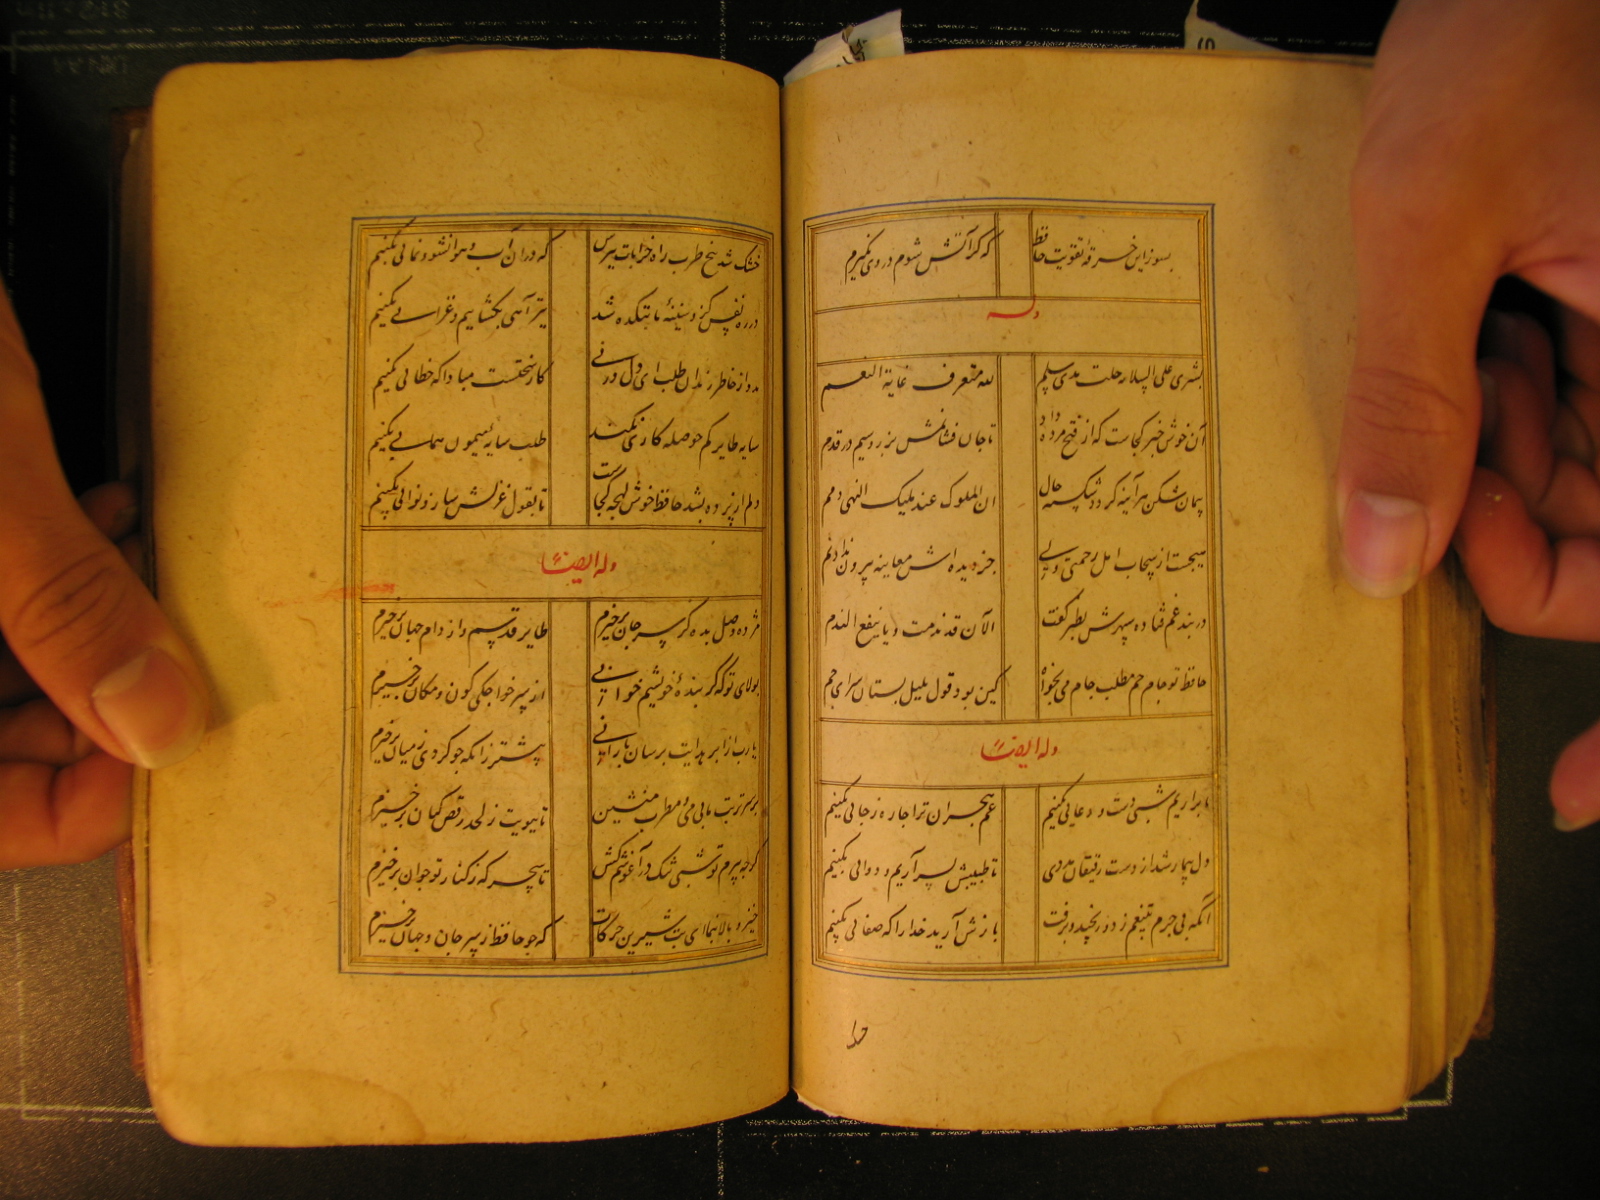 بسوز این خرقه تقویت حافظ
که گر آتش شوم در وی نگیرم
وله
بشری علی السلامه حلت بذی سلم
لله معترف غایة النعم
آن خوش خبر کجاست که از فتح مژده داد
تا جان فشانمش بزر و سیم در قدم
پیمان شکن هر آینه گردد شکسته حال
ان الملوک عند ملیک النهی ذمم
میجست از سحاب امل رحمتی ولی
جز دیده اش معاینه بیرون نداد نم
در بند غم فتاده سپهرش بطنز گفت
الآن قد ندمت و ما ینفع الندم
حافظ تو جام جم مطلب جام می بخواه
کین بود قول بلبل بستان سرای جم
وله ایضا
ما برآریم شبی دست و دعایی بکنیم
غم هجران ترا چاره ز جایی بکنیم
دل بیمار شد از دست رفیقان مددی
تا طبیبش بسر آریم و دوائی بکنیم
آنکه بی جرم بتیغم زد و رنجید و برفت
بازش آرید خدا را که صفائی بکنیم
خشک شد بیخ طرب راه خرابات بپرس
که در آن آب و هوا نشو و نمائی بکنیم
در ره نفس کزو سینهٔ ما بتکده شد
تیر آهی بکشاییم و غزایی بکنیم
مدد از خاطر رندان طلب ای دل ورنی
کار سختست مبادا که خطائی بکنیم
سایه طایر کم حوصله کاری نکند
طلب سایهٔ میمون همایی بکنیم
دلم از پرده بشد حافظ خوش لهجه کجاست
تا بقول غزلش ساز و نوائی بکنیم
وله ایضا
مژده وصل بده کز سر جان برخیزم
طایر قدسم و از دام جهان برخیزم
بولای تو که گر بندهٔ خویشم خوانی
از سر خواجگی کون و مکان برخیزم
یا رب از ابر هدایت برسان بارانی
پیشتر زانکه چو گردی ز میان برخیزم
بر سر تربت ما بی می و مطرب منشین
تا ببویت ز لحد رقص کنان برخیزم
گرچه پیرم تو شبی تنک در آغوشم کش
تا سحرکه ز کنار تو جوان برخیزم
خیز و بالا بنما ای بت شیرین حرکات
که چو حافظ ز سر جان و جهان برخیزم